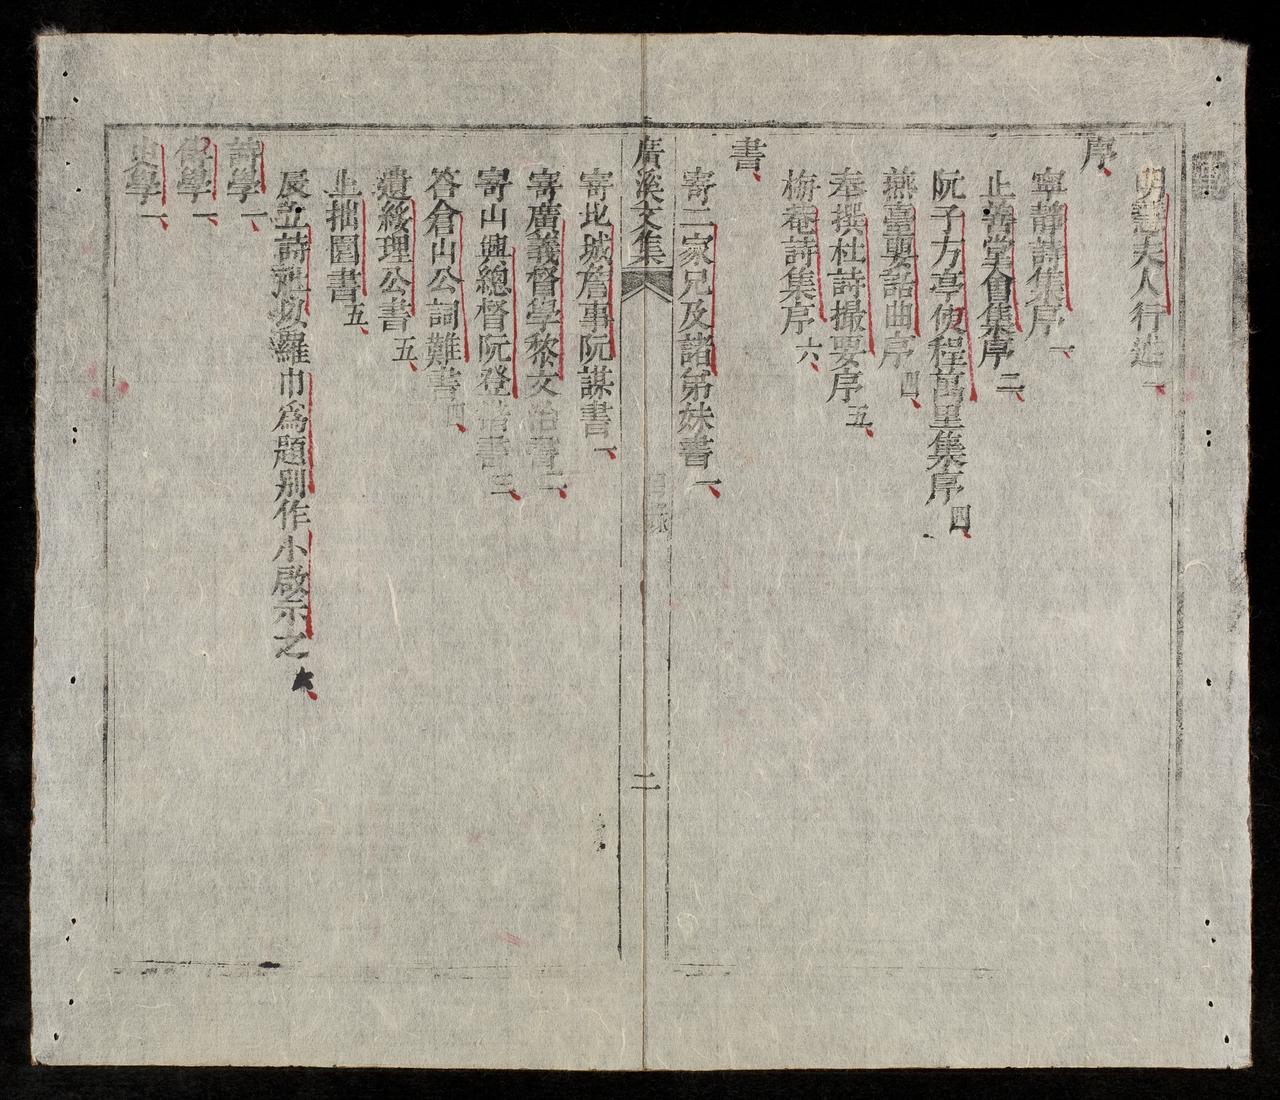 明慧夫人行述一
序
寧靜詩集序一
止善堂會集序二
阮子方亭使程萬里集序四
燕臺嬰話曲序四
奉撰杜詩撮要序五
梅菴詩集序六
書
寄二家兄及諸弟妹書一
廣溪文集
目錄
二
寄北城詹事阮謀書一
寄廣義督學黎文治書二
寄山興總督阮登諧書三
答倉山公詞難書四
遺綏理公書五
上拙園書五
辰立詩社以羅巾為題別作小啟示之六
詩學一
佛學一
史學一